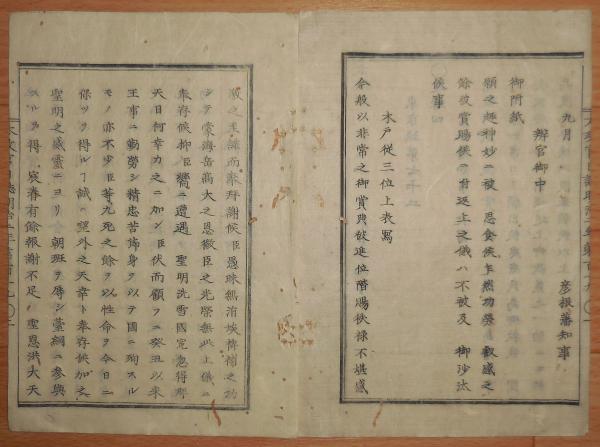 九月　彦根藩知事
辨官御中
御附紙
願之趣神妙ニ被　思食候乍然功勞　叡感之
餘被賞賜候ニ付返上之儀ハ不被及　御沙汰
候事
木戸從三位上表寫
今般以非常之御賞典敍進位階賜秩禄不堪感
激之至謹而奉拜謝候臣愚昧無涓埃裨補之功
シテ蒙海岳高大之恩徽臣之光榮無此上儀ニ
奉存候抑臣嚮ニ遭遇　聖明洗雪國冤急得
天日柯幸力之ニ加シ臣伏而顧フニ癸丑以來
王事ニ勤勞シ精忠苦節身ヲ以テ國ニ殉スル
モノ亦不少臣等九死之餘ヲ以性命ヲ今日ニ
保ツヲ得ル丁誠ニ望外之天幸ト奉存候加之
聖明之威靈ニヨリ　朝班ヲ辱シ臺綱ニ參與
スルヲ得　寵眷有餘報謝不足　聖恩洪大天